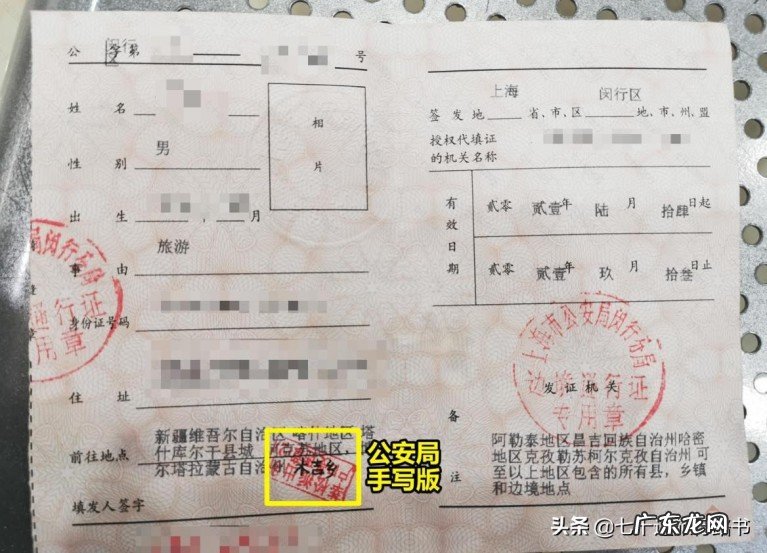 公 字第 号
闵行
区
姓 名
相
片
性 别 男
出 生 , 月
旅游
事 由
身份证号码
住 址
新疆维吾尔自治区 喀什地区 塔
什库尔干县域 阿克苏地区,
前往地点
尔塔拉蒙古自治州 木吉乡
填发人签字
公安局
手写版
通行证
专用章
上海 闵行区
签 发 地 省、市、区 地、市、州、盟
授权代填证
的机关名称
有效日期
贰零 贰壹年 陆 月 拾肆日起
贰零 贰壹年 玖 月 拾叁日止
上海市公安局闵行分局
边境通行证
专用章
发证机关
备
注
阿勒泰地区昌吉回族自治州哈密
地区克孜勒苏柯尔克孜自治州 可
至以上地区包含的所有县,乡镇
和边境地点
头条 @七
广东龙网
书